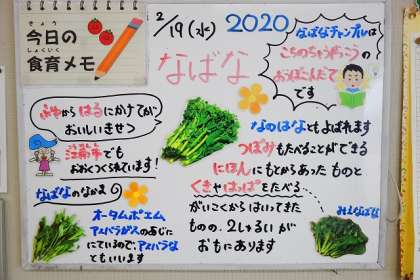 きょう
今日の
しょくいく
食育メモ
2/19(水) 2020
なばな
なばなチャンプルは
こちらのちゅうがっこうの
おうぼこんだて
です
から はるにかけてが
おいしいきせつ
でも
おおくつくられています!
なばなのなかま
オータムポエム、
アスパラがスのあじに
にているので、アスパラな
ともいいます
なのはなともよばれます
つぼみもたべることができる
にほんにもとからあった ものと
くきやはっぱをたべる
がいこくからはいってきた
ものの、2しゅるいが
おもにあります
みえなばな